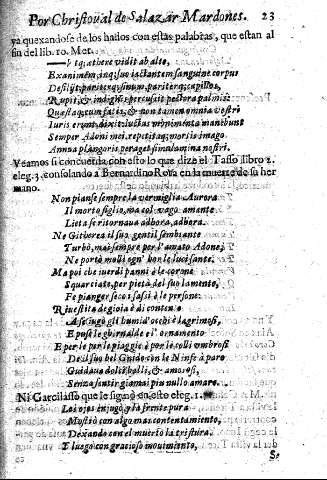 Por Christoual de Salazar Mardones. 23
ya quexandose de los hados con estas palabras, que estan al
fin del lib. 10. Met.
vtq; æthere vidit ab alto,
Exanimem, inq; suo iactantem sanguine corpus
Desilijt, pariterq; sinum, pariterq; capillos,
Rupit, & indignis percussit pectora palmis:
Questaq; cum fatis, & non tamen omnia vestri
Iuris erunt, dixit: luctus monimenta manebunt
Semper Adoni mei, repetitaq; mortis imago
Annua plangoris peraget simulamina nostri.
Veamos si concuerda con esto lo que dize el Tasso libro 2.
eleg. 3. consolando a Bernardino Rota en la muerte de su her
mano.
Non pianse sempre la vermiglia Aurora
Il morto figlio, ma col vago amante
Lieta se ritornaua adhora, adhora.
Ne Citherea il suo gentil sembiante
Turbò, mai sempre per l'amato Adone,
Ne portò molli ogn'hor le luci sante,
Ma poi che i verdi panni è le corone
Squarciate, per pietà del suo lamento,
Fe pianger seco i sassi è le persone:
Riuestita de gioia è di contento
Asciugò gli humidi occhi è lagrimosi,
E pose le ghirnalde e l'ornamento
E per le per le piaggie è per le colli ombrosi
De il suo bel Guido con le Ninfe à paro
Guidaua dolci balli, & amorosi,
Senza sentir giamai piu nullo amaro.
Ni Garcilasso que le siguio en este eleg. 1.
Los ojos enjugò, y la frente pura
Mostrò con algo mas contentamiento,
Dexando con el muerto la tristura.
Y luego con gracioso mouimiento,
Se